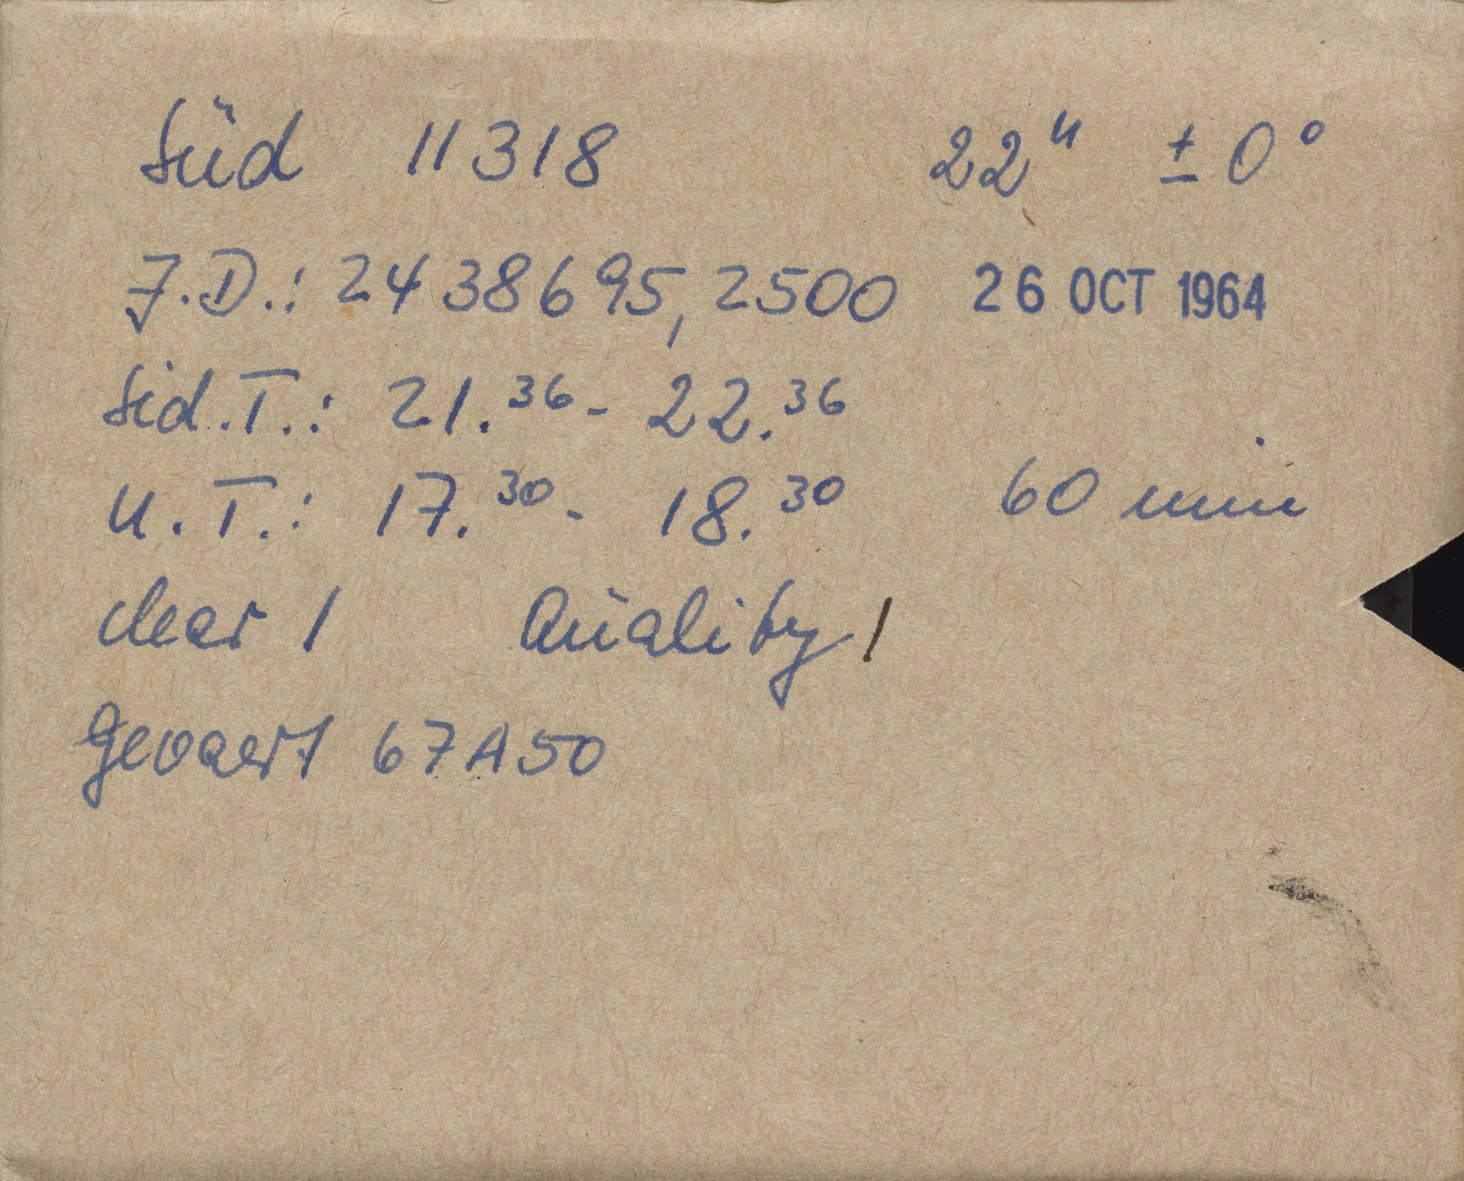 Süd 11318 22ʰ ± 0°
J.D.: 2438695,2500 26 OCT 1964
Sid.T.: 21.³⁶ - 22.³⁶
U.T.: 17.³⁰ - 18.³⁰ 60 min
clear 1 Quality 1
Gevaert 67A50